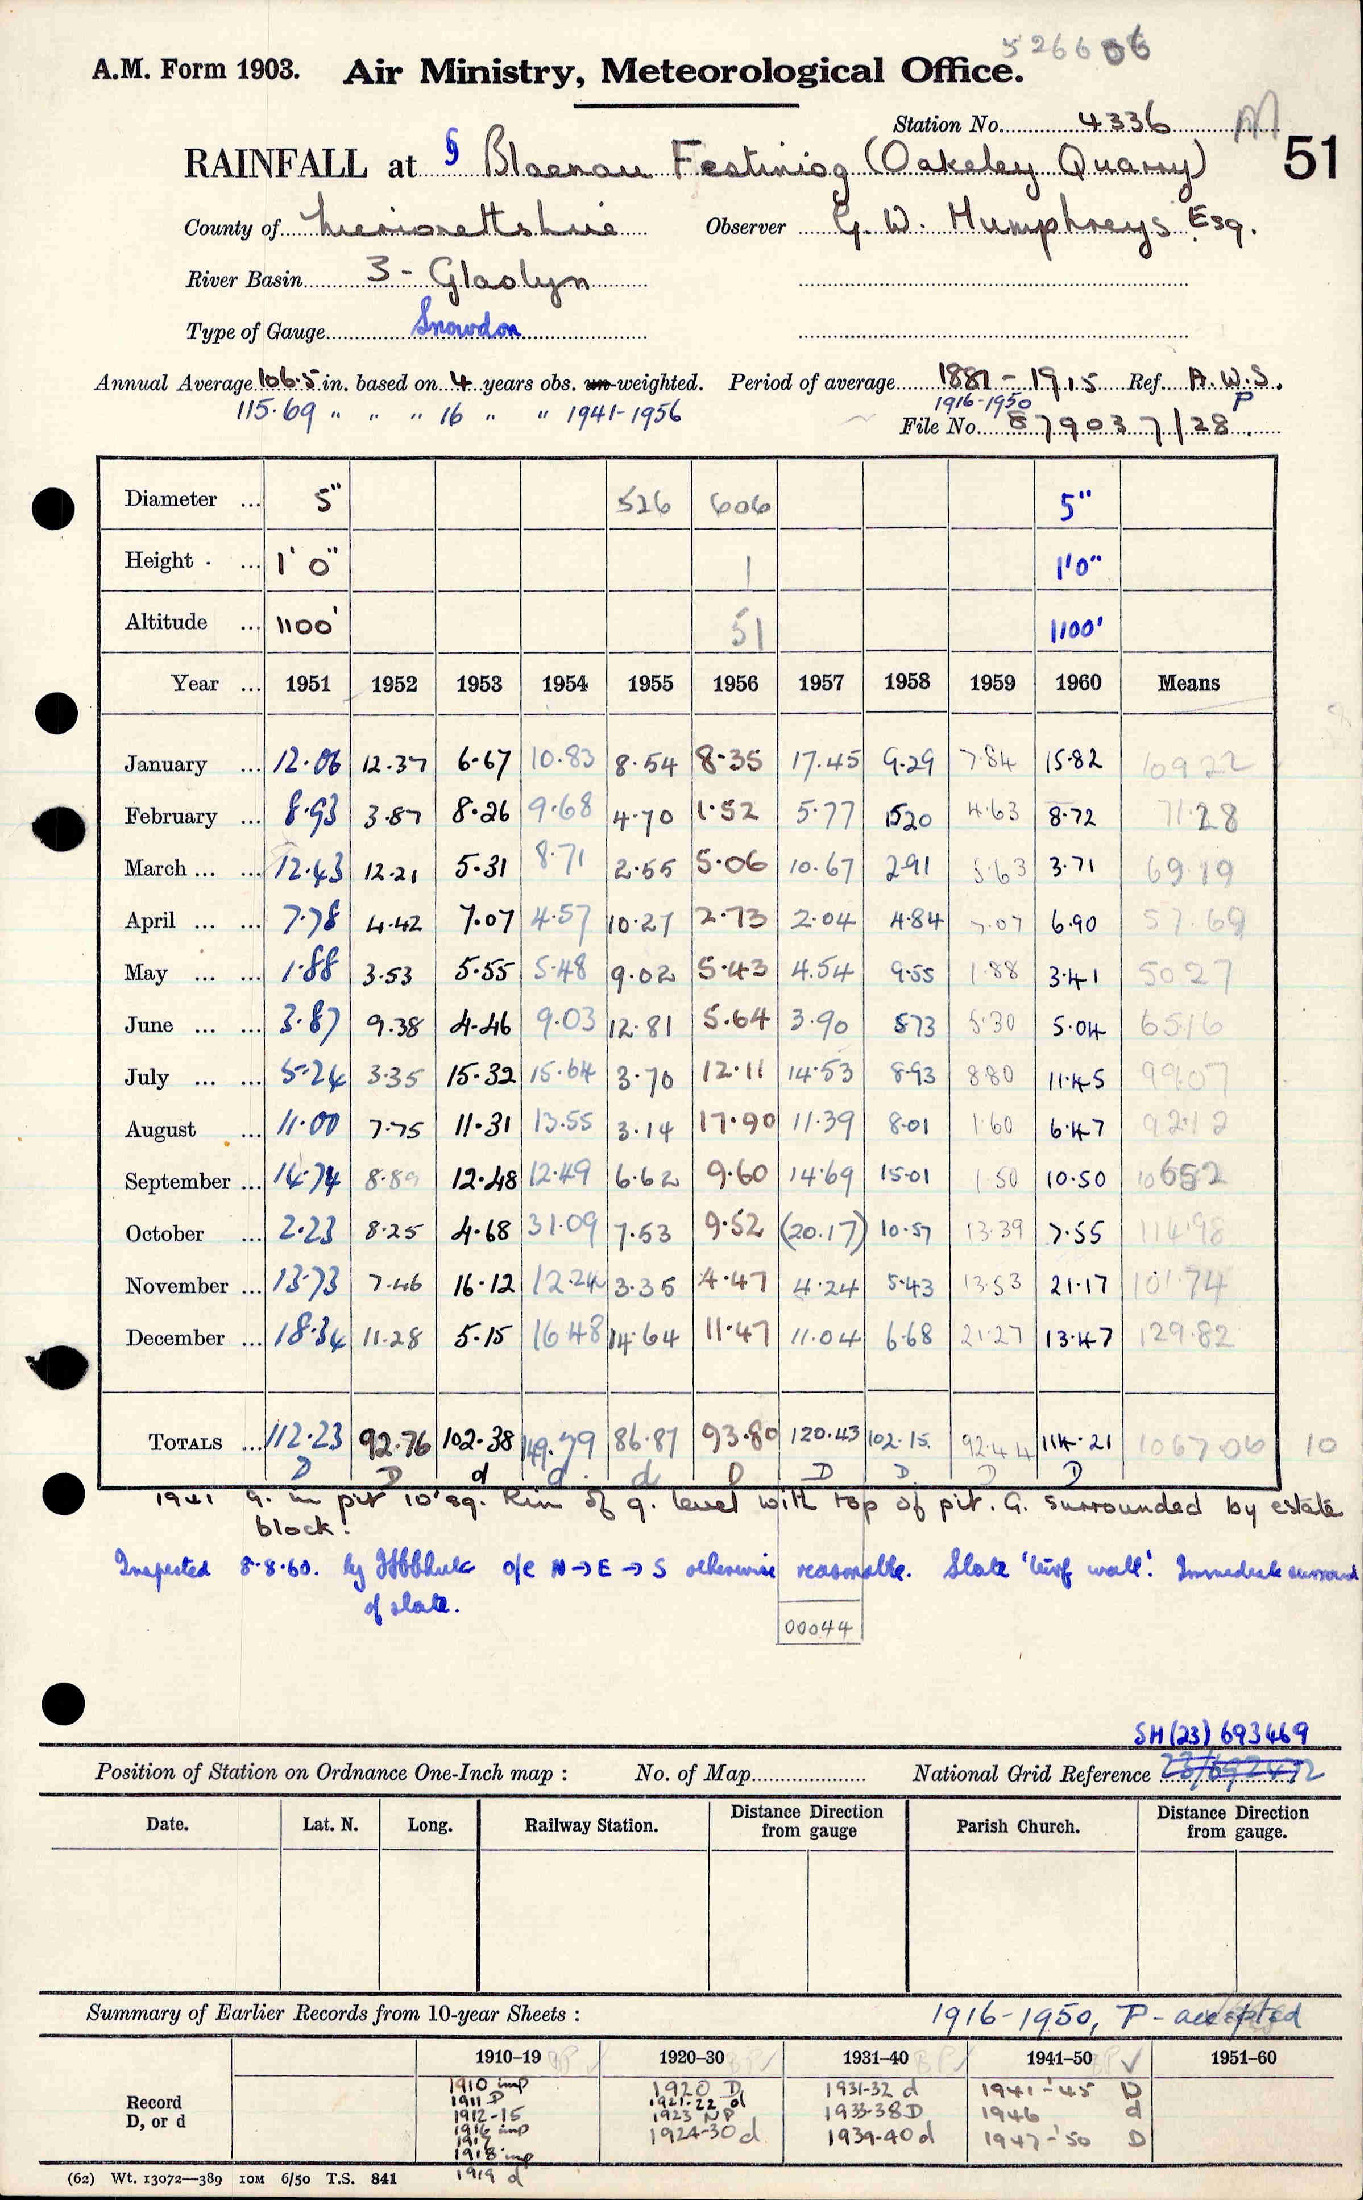 526606
A.M. Form 1903. Air Ministry, Meteorological Office.
Station No. 4336 M
RAINFALL at § Blaenau Festiniog (Oakeley Quarry) 51
County of Merionethshire Observer G. W. Humphreys Esq.
River Basin 3 - Glaslyn
Type of Gauge Snowdon
Annual Average 106.5 in. based on 4 years obs. un-weighted. Period of average 1881 - 1915 Ref. A.W.S.
115.69 " " " 16 " " 1941-1956 1916-1950 P
File No. 879037/28
Diameter ... 5" 526 606 5"
Height . ... 1' 0" 1 1'0"
Altitude ... 1100' 51 1100'
Year ... 1951 1952 1953 1954 1955 1956 1957 1958 1959 1960 Means
January ... 12.06 12.37 6.67 10.83 8.54 8.35 17.45 9.29 7.84 15.82 109.22
February ... 8.93 3.87 8.26 9.68 4.70 1.52 5.77 1520 4.63 8.72 71.28
March ... ... 12.43 12.21 5.31 8.71 2.55 5.06 10.67 2.91 5.63 3.71 69.19
April ... ... 7.78 4.42 7.07 4.57 10.27 2.73 2.04 4.84 7.07 6.90 57.69
May ... ... 1.88 3.53 5.55 5.48 9.02 5.43 4.54 9.55 1.88 3.41 50.27
June ... ... 3.87 9.38 4.46 9.03 12.81 5.64 3.90 5.73 5.30 5.04 65.16
July ... ... 5.24 3.35 15.32 15.64 3.70 12.11 14.53 8.93 8.80 11.45 99.07
August ... 11.00 7.75 11.31 13.55 3.14 17.90 11.39 8.01 1.60 6.47 92.12
September ... 14.74 8.89 12.48 12.49 6.62 9.60 14.69 15.01 1.50 10.50 106.52
October ... 2.23 8.25 4.68 31.09 7.53 9.52 (20.17) 10.57 13.39 7.55 114.98
November ... 13.73 7.46 16.12 12.24 3.35 4.47 4.24 5.43 13.53 21.17 101.74
December ... 18.34 11.28 5.15 16.48 14.64 11.47 11.04 6.68 21.27 13.47 129.82
TOTALS ... 112.23 92.76 102.38 149.79 86.87 93.80 120.43 102.15 92.44 114.21 1067.06 10
D D d d d D D D D D
1941 G. in pit 10' sq. Rim of g. level with top of pit. G. surrounded by estate
block!
Inspected 8.8.60. by o/e N → E → S otherwise reasonable. Slate 'turf wall'. Immediate surround
of slate.
00044
SH (23) 693469
Position of Station on Ordnance One-Inch map : No. of Map National Grid Reference
Date. Lat. N. Long. Railway Station. Distance Direction from gauge Parish Church. Distance Direction from gauge.
Summary of Earlier Records from 10-year Sheets : 1916-1950, P - accepted
1910-19 1920-30 1931-40 1941-50 1951-60
Record D, or d
1910 imp 1920 D 1931-32 d 1941-'45 D
1911 D 1921-22 d 1933-38 D 1946 d
1912-15 1923 NP 1939-40 d 1947-'50 D
1916 imp 1924-30 d
1917
1918 imp
1919 d
(62) Wt. 13072—389 IOM 6/50 T.S. 841